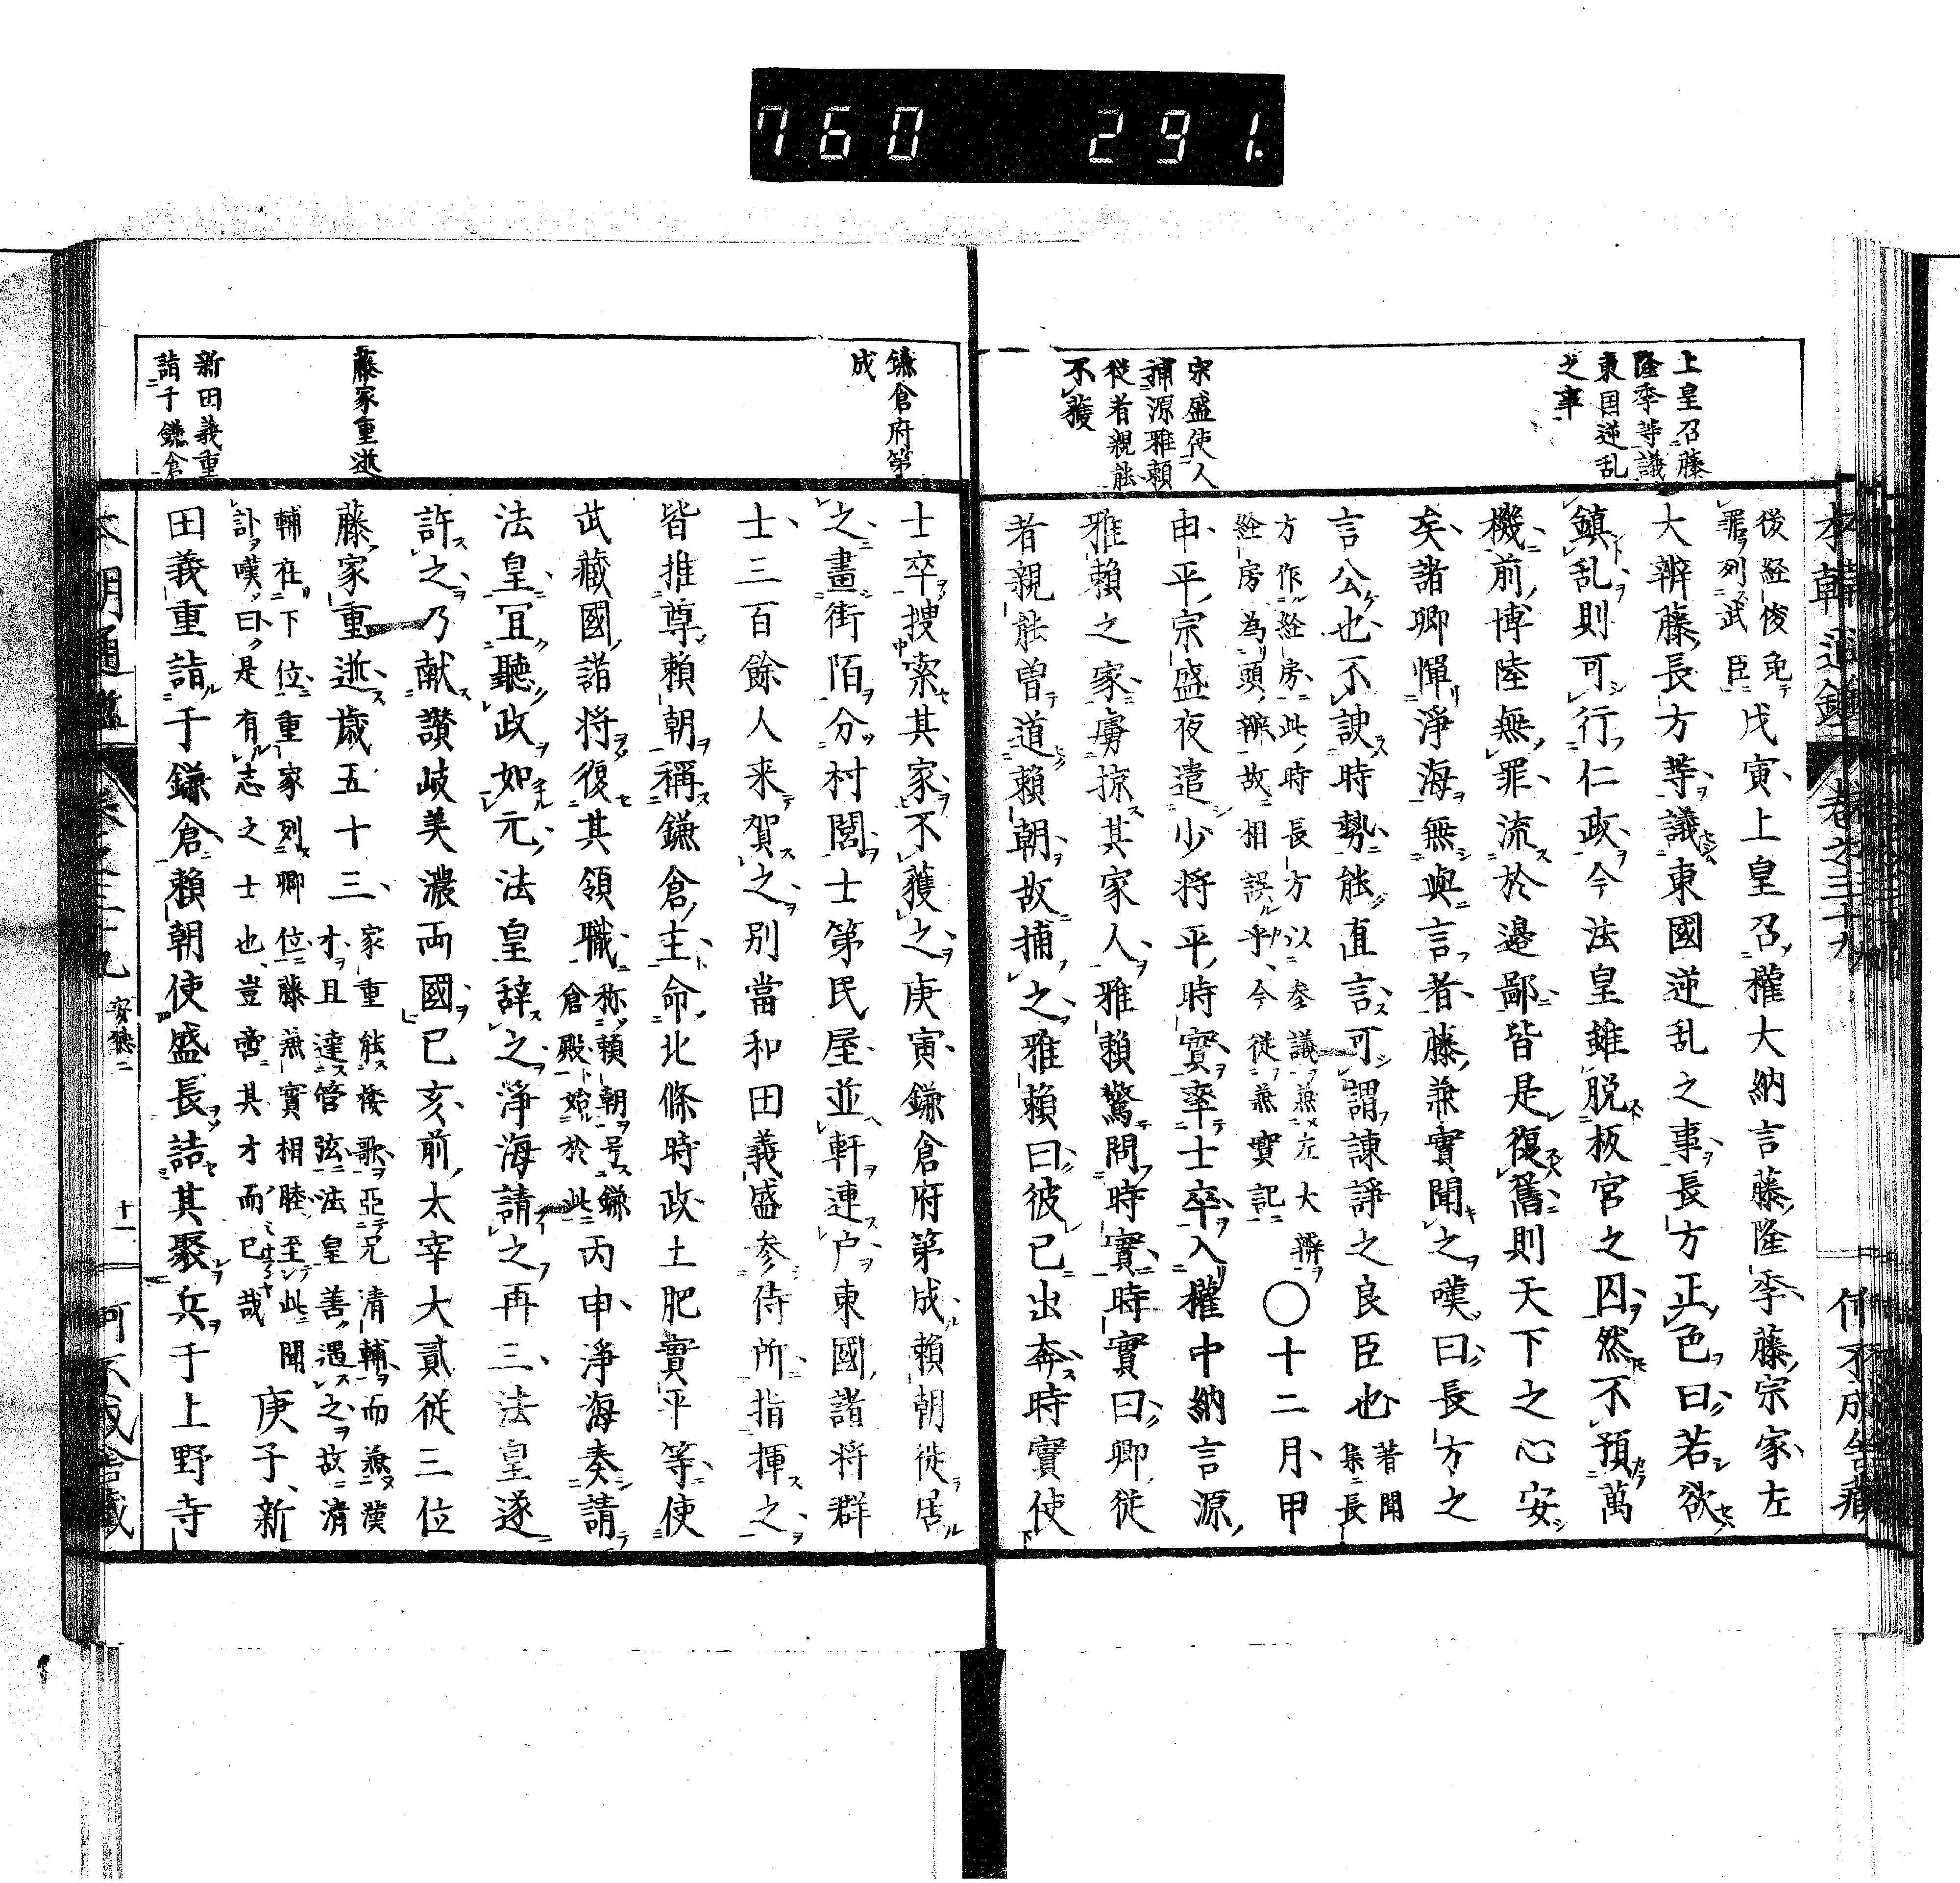 760 291
上皇召藤
隆季等議
東国逆乱
之事
宗盛使人
捕源雅頼
従者親能
不獲
後経俊免
罪列武臣
戊寅上皇召權大納言藤隆季藤宗家左
大辨藤長方等議東國逆乱之事長方正色曰若欲
鎮乱則可行仁政今法皇雖脱板官之囚然不預萬
機前博陸無罪流於邉鄙皆是復舊則天下之心安
矣諸卿憚淨海無與言者藤兼實聞之嘆曰長方之
言公也不諛時勢能直言可謂諫諍之良臣也
著聞
集長
方作経房此時長方以参議兼左大辨
経房為頭辨故相誤乎今從兼實記
○十二月甲
申平宗盛夜遣少将平時實率士卒入權中納言源
雅頼之家虜掠其家人雅頼驚問時實時實曰卿従
者親能曽道頼朝故捕之雅頼曰彼已出奔時實使
鎌倉府第
成
藤家重逝
新田義重
詣于鎌倉
士卒捜索其家不獲之庚寅鎌倉府第成頼朝徙居
之畫街陌分村閭士第民屋並軒連戸東國諸将群
士三百餘人来賀之別當和田義盛参侍所指揮之
皆推尊頼朝稱鎌倉主命北條時政土肥實平等使
武藏國諸将復其領職
称頼朝号鎌
倉殿始於此
丙申淨海奏請
法皇冝聽政如元法皇辞之淨海請之再三法皇遂
許之乃献讃岐美濃両國已亥前太宰大貳従三位
藤家重逝歳五十三
家重能倭歌亞兄清輔而兼漢
才且達管弦法皇善遇之故清
輔在下位重家列卿位藤兼實相睦至此聞
訃嘆曰是有志之士也豈啻其才而已哉
庚子新
田義重詣于鎌倉頼朝使盛長詰其聚兵于上野寺